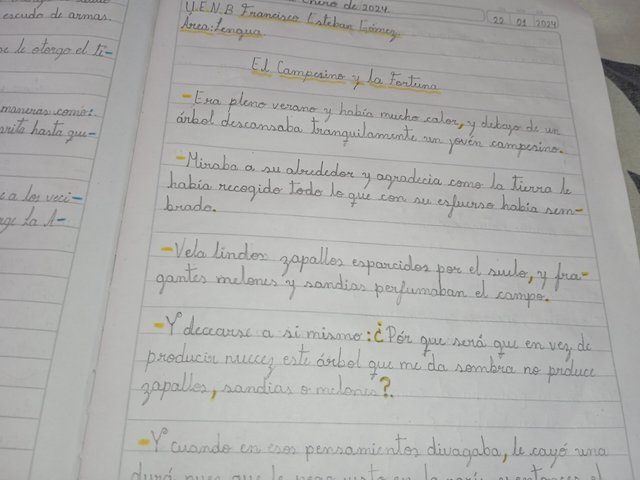 escudo de armas.
se le otorgo el ti-
maneras como:
hasta que-
a los veci-
La A-
Enero de 2024.
22 01 2024
U.E.N.B Francisco Esteban Gómez
Área: Lengua
El Campesino y la Fortuna
- Era pleno verano y había mucho calor, y debajo de un
árbol descansaba tranquilamente un joven campesino.
- Miraba a su alrededor y agradecia como la tierra le
había recogido todo lo que con su esfuerso había sem-
brado.
- Veía lindos zapallos esparcidos por el suelo, y fra-
gantes melones y sandias perfumaban el campo.
- Y decearse a si mismo: ¿Pór que será que en vez de
producir nuecez este árbol que me da sombra no prduce
zapallos, sandias o melones?
- Y cuando en esos pensamientos divagaba, le cayó una
durá nues que le pega justo en la